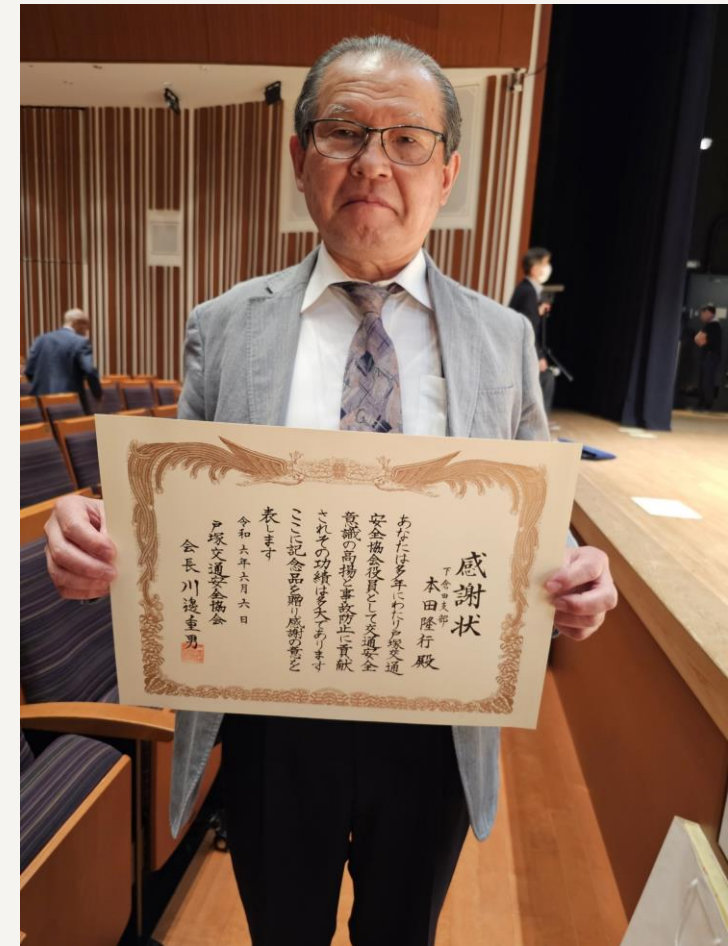 感謝状
下倉田支部
本田隆行殿
あなたは多年にわたり戸塚交通
安全協会役員として交通安全
意識の高揚と事故防止に貢献
されその功績は多大であります
ここに記念品を贈り感謝の意を
表します
令和六年六月六日
戸塚交通安全協会
会長川邉重男